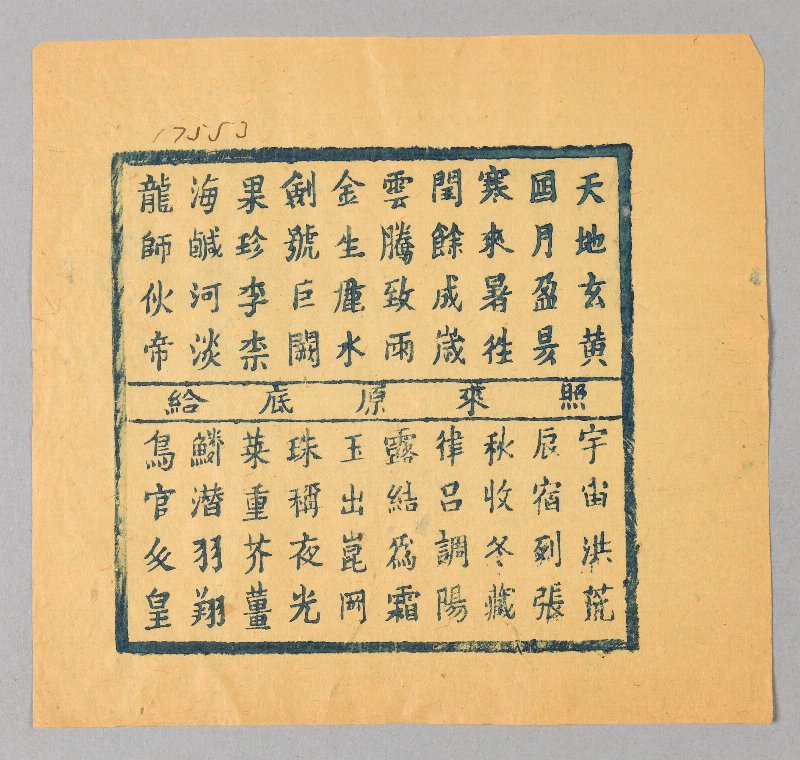 17553
天地玄黃
囸月盈昃
寒來暑往
閏餘成歲
雲騰致雨
金生麗水
劍號巨闕
果珍李柰
海鹹河淡
龍師伙帝
照來原底給
宇宙洪荒
辰宿列張
秋收冬藏
律呂調陽
露結為霜
玉出崑岡
珠稱夜光
菜重芥薑
鱗潛羽翔
鳥官人皇